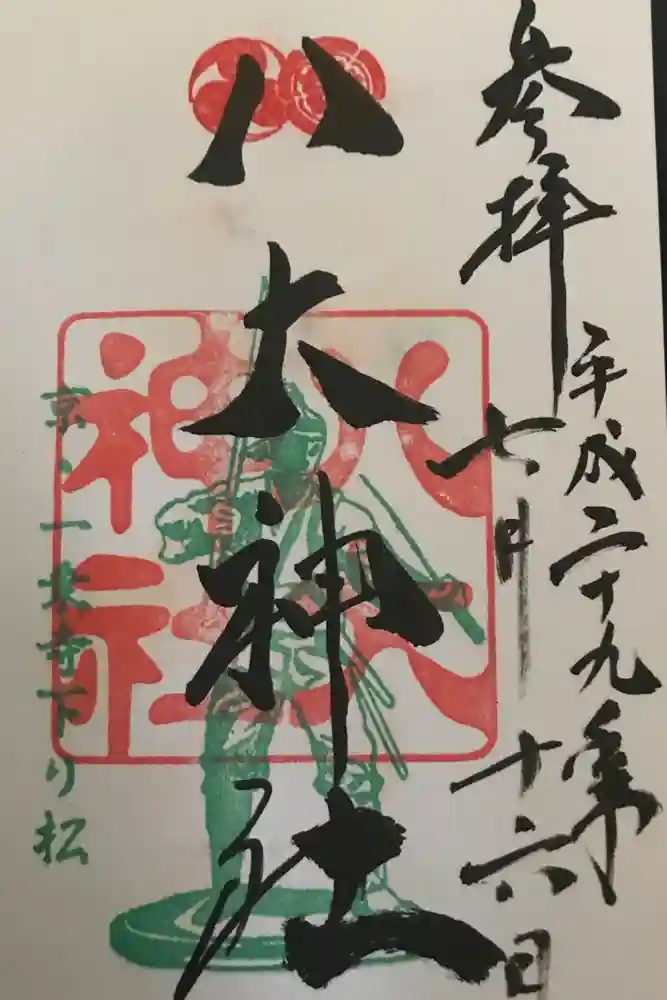 参拝
平成二十九年
七月十六日
八大神社
八大神社
京・一乗寺下り松